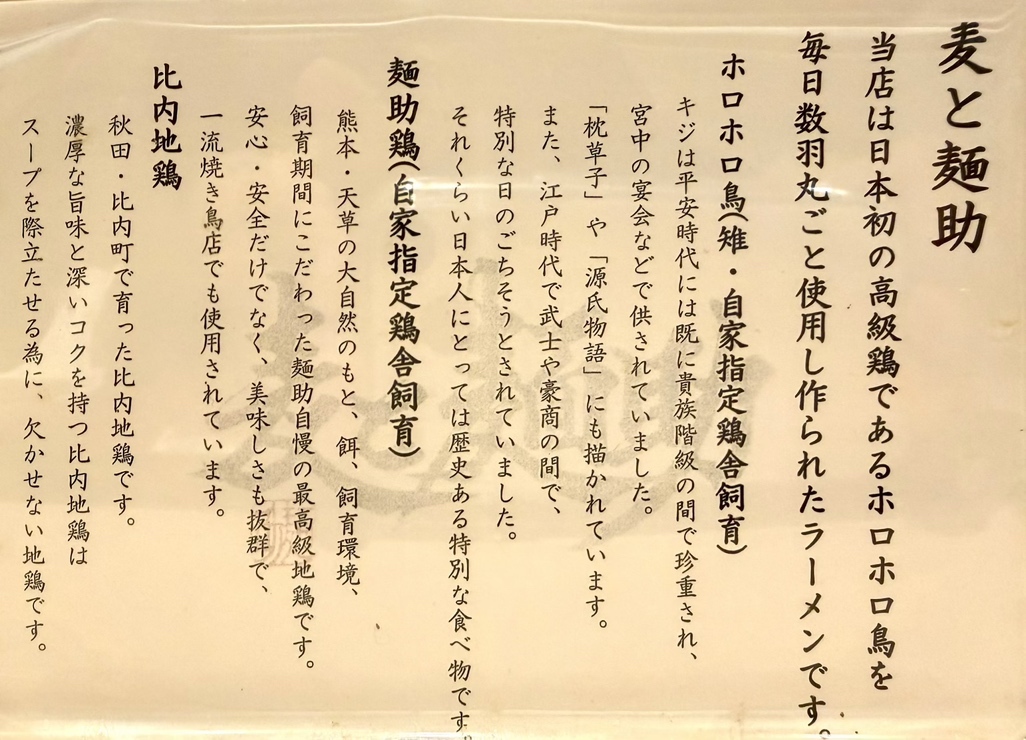 麦と麺助
当店は日本初の高級鶏であるホロホロ鳥を
毎日数羽丸ごと使用し作られたラーメンです。
ホロホロ鳥(雉・自家指定鶏舎飼育)
キジは平安時代には既に貴族階級の間で珍重され、
宮中の宴会などで供されていました。
「枕草子」や「源氏物語」にも描かれています。
また、江戸時代で武士や豪商の間で、
特別な日のごちそうとされていました。
それくらい日本人にとっては歴史ある特別な食べ物です。
麺助鶏(自家指定鶏舎飼育)
熊本・天草の大自然のもと、餌、飼育環境、
飼育期間にこだわった麺助自慢の最高級地鶏です。
安心・安全だけでなく、美味しさも抜群で、
一流焼き鳥店でも使用されています。
比内地鶏
秋田・比内町で育った比内地鶏です。
濃厚な旨味と深いコクを持つ比内地鶏は
スープを際立たせる為に、欠かせない地鶏です。